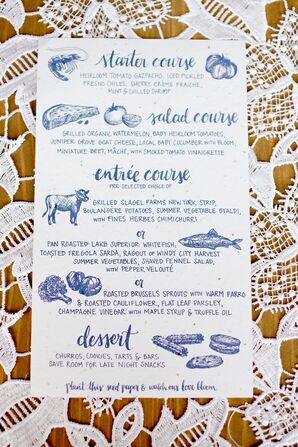 starter course
HEIRLOOM TOMATO GAZPACHO, ICED PICKLED
FRESNO CHILES, SHERRY, CRÈME FRAICHE,
MINT & CHILLED SHRIMP
salad course
GRILLED ORGANIC WATERMELON, BABY HEIRLOOM TOMATOES,
JUNIPER GROVE GOAT CHEESE, LOCAL BABY CUCUMBER WITH BLOOM,
MINIATURE BEET, MÂCHE, WITH SMOKED TOMATO VINAIGRETTE
entrée course
PRE-SELECTED CHOICE OF
GRILLED SLAGEL FARMS NEW YORK STRIP,
BOULANGÈRE POTATOES, SUMMER VEGETABLE
WITH FINES HERBES CHIMICHURRI
or
PAN ROASTED LAKE SUPERIOR WHITEFISH,
TOASTED FREGOLA SARDA, RAGOUT OF WINDY CITY HARVEST
SUMMER VEGETABLES, SHAVED FENNEL SALAD,
WITH PEPPER VELOUTÉ
or
ROASTED BRUSSELS SPROUTS WITH WARM FARRO
& ROASTED CAULIFLOWER, FLAT LEAF PARSLEY,
CHAMPAGNE VINEGAR WITH MAPLE SYRUP & TRUFFLE OIL
dessert
CHURROS, COOKIES, TARTS & BARS
SAVE ROOM FOR LATE NIGHT SNACKS
plant this seed paper & watch our love bloom.